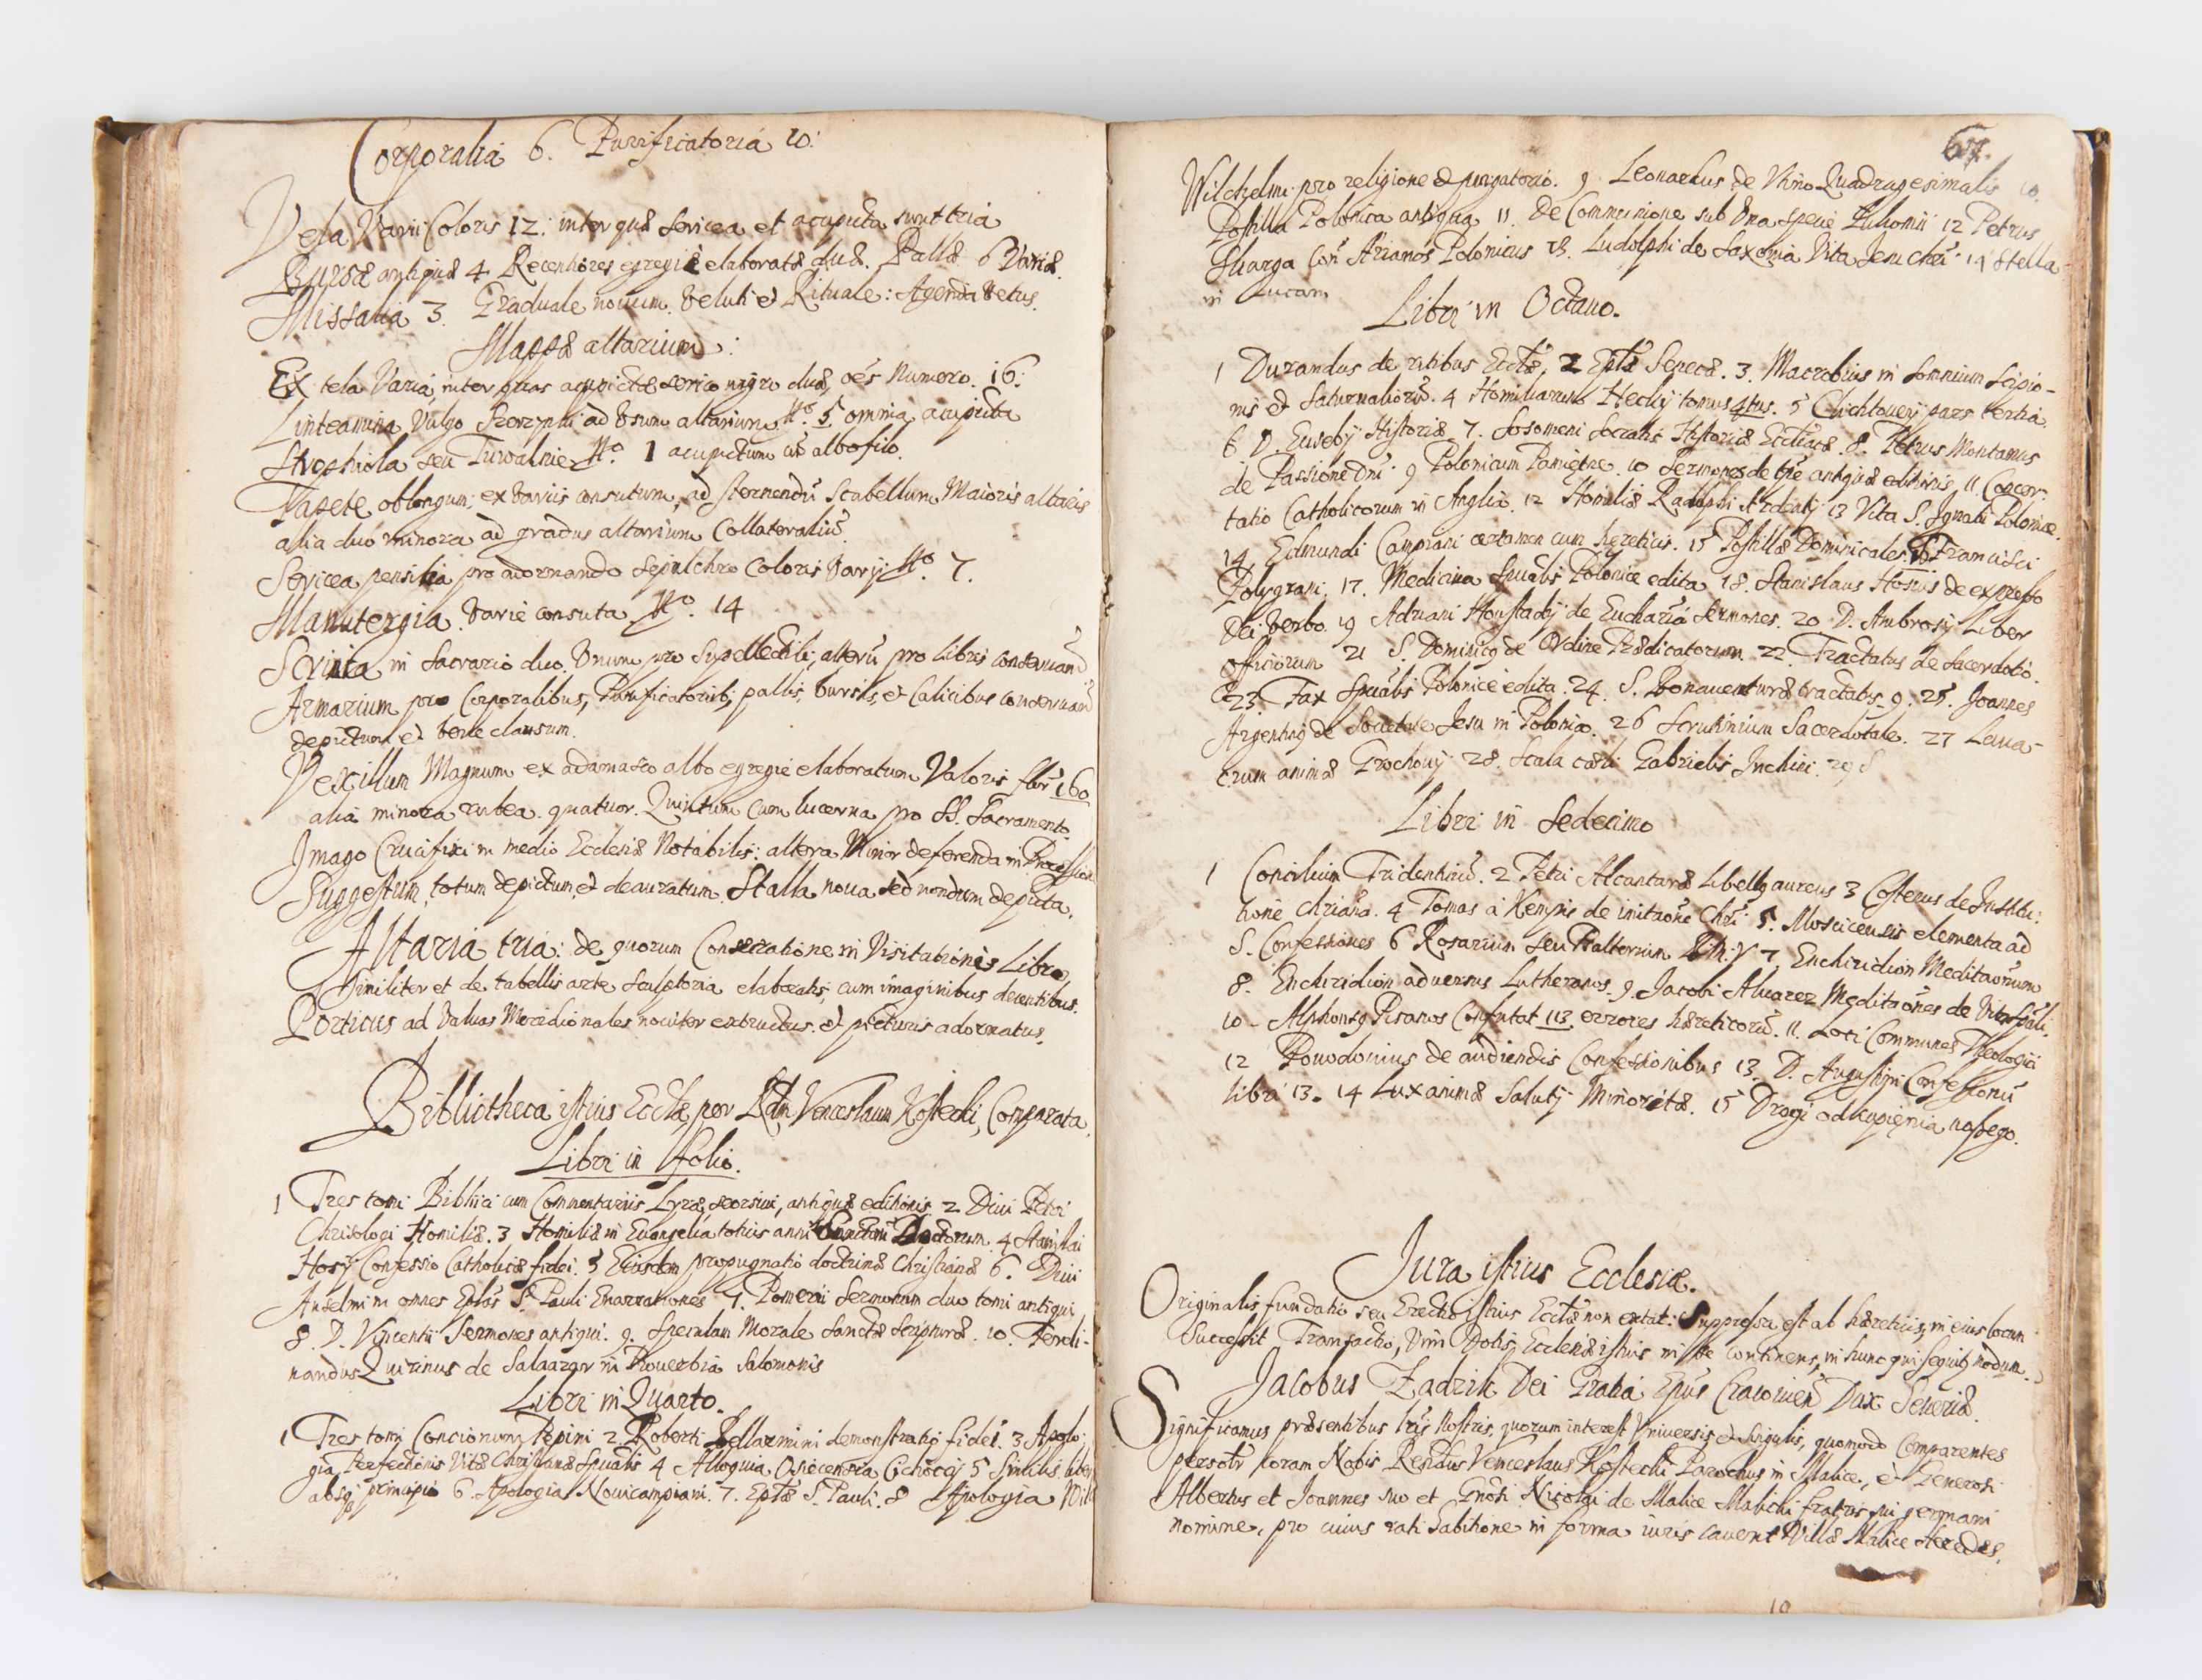 Corporalia 6. Purificatoria 10.
Vela Varii Coloris 12: inter quæ sericea et acupicta sunt tria
Bursæ antiquæ 4. Recentiores egregiè elaboratæ duæ. Pallæ 6 Variæ.
Missalia 3. Graduale novum. veluti et Rituale: Agenda vetus.
Mappæ altarium:
Ex tela Varia, inter quas acupictæ serico nigro duæ, oẽs Numero. 16.
Linteamina Vulgo ad Vsum altarium No. 5 omnia acupicta
Strophiola seu Tuwalnie No. 1 acupictum cũ albo filo.
Tapete oblongum, ex variis consutum, ad sternendũ Scabellum Maioris altaris
alia duo minora ad gradus altarium Collateraliũ.
Sericea pensilia pro adornando Sepulchro Coloris Varij No. 7.
Manutergia. varie consuta No. 14
Scrinia in Sacrario duo. Vnum pro Supellectili, alterũ pro Libris conservand
Armarium pro Corporalibus, Purificatorib, pallis, bursis, et Calicibus conservand
depictum et bene clausum.
Vexillum Magnum ex adamasco albo egregie elaboratum Valoris flor 160
alia minora rubea quatuor. Quintum cum lucerna pro SS. Sacramento.
Imago Crucifixi in medio Ecclesiæ Notabilis: altera Minor deferenda in Procession
Suggestum, totum depictum et deauratum. Stalla noua sed nondum depicta.
Altaria tria: de quorum Consecratione in Visitationis Libro,
Similiter et de tabellis arte Sculptoria elaboratis, cum imaginibus decentibus.
Porticus ad Valvas Meridionales noviter extructus et picturis adornatus.
Bibliotheca istius Ecclæ per Rdm Venceslaum Kostecki, Comparata.
Libri in folio.
1 Tres tomi Biblici cum Commentariis Lyræ, seorsivi, antiquæ editionis 2 Divi Petri
Chrisologi Homiliæ. 3 Homiliæ in Evangelia totius anni Doctorum. 4 Stanislai
Hosij Confessio Catholicæ fidei. 5 Eiusdem propugnatio doctrinæ Christianæ 6. Divi
Anselmi in omnes Eplas S. Pauli Enarrationes 7. Pomerii Sermonum duo tomi antiqui
8. D. Vincentii Sermones antiqui. 9. Speculum Morale Sanctæ Scripturæ. 10. Ferdi-
nandus Quirinus de Salaazar in Proverbia Salomonis
Libri in Quarto.
1 Tres tomi Concionum Pepini 2 Roberti Bellarmini demonstratio fidei. 3 Apolo:
gia Perfectionis Vitæ Christianæ Spũalis 4 Alloquia Osiecensia Cichocij 5 Similis liber
absq principio 6. Apologia Novicampiani. 7. Eplæ S. Pauli. 8 Apologia Wil
67.
Wilchelmi pro religione et purgatorio. 9 Leonardus de Vtino Quadragesimalis 10.
Postilla Polonica antiqua 11. De Communione sub Vna specie 12 Petrus
Skarga Con Arianos Polonicus 13. Ludolphi de Saxonia Vita Jesu Chri 14 Stella
in Lucam
Libri in Octavo.
1 Durandus de ritibus Ecclæ, 2 Eplæ Senecæ. 3. Macrobius in Somnium Scipio-
nis et Saturnaliorũ. 4 Homiliarum Heckij tomus 4tus. 5 Clichtovei pars tertia
6 D. Eusebij Historiæ 7. Sosomeni Socratis Historiæ Eccliacæ. 8. Petrus Montanus
de Passione Dni 9 Polonicum Pamiętne. 10 Sermones de tpe antiquæ editionis 11. Concer:
tatio Catholicorum in Anglia. 12 Homiliæ Radulphi Ardentij 13 Vita S. Ignatii Polonicæ.
14. Edmundi Campiani certamen cum hæreticis. 15 Postillæ Dominicales. 16 Francisci
Polygrani. 17. Medicina Spũalis Polonice edita 18. Stanislaus Hosius de expresso
Dei verbo. 19 Adriani de Eucharia Sermones. 20 D. Ambrosij Liber
Officiorum 21 S. Dominicq de Ordine Prædicatorum. 22. Tractatus de Sacerdotio.
23. Fax Spũalis Polonicè edita. 24. S. Bonaventuræ tractatus 9. 25. Joannes
Argentinq de Societate Jesu in Polonia. 26 Scrutinium Sacerdotale. 27 Lava-
crum animæ Grochovij 28. Scala cæli Gabrielis Inchini. 29 S
Libri in Sedecimo
1 Concilium Tridentinũ. 2 Petri Alcantaræ libellq aureus 3 Costerus de Institu:
tione Chriana. 4 Tomas à Kempis de imitaone Chri 5. Moscicensis elementa ad
S. Confessiones 6 Rosarium seu Psalterium B.M.V 7 Enchiridion Meditaonum
8. Enchiridion adversus Lutheranos. 9. Jacobi Alvarez Meditaones de Vita Spũali.
10. Alphonsq Pisanus Confutat 113 errores hæreticorũ. 11. Loci Communes Theologici
12 Powodovius de audiendis Confessionibus 13. D. Augustini Confessionũ
libri 13. 14 Lux animæ Salutis Minoritæ. 15 Drogi odkupięnia naszego.
Jura istius Ecclesiæ.
Originalis fundatio seu Erectio istius Ecclæ non extat: Suppressa est ab hæreticis, in eius locum
Successit Transactio, Vim Dotis, Ecclesiæ istius in se continens, in hunc qui sequitr modum.
Jacobus Zadzik Dei Gratia Epus Cracovien Dux Severiæ.
Significamus præsentibus lris Nostris, quorum interest Vniversis et Singulis, quomodo Comparentes
personlr coram Nobis Rendus Venceslaus Kostecki Parochus in Malice, et Generosi
Albertus et Joannes suo et Gnosi Nicolai de Malice Malicki fratris sui germani
nomine, pro cuius rati habitione in forma iuris cavent Villæ Malice Hæredes,